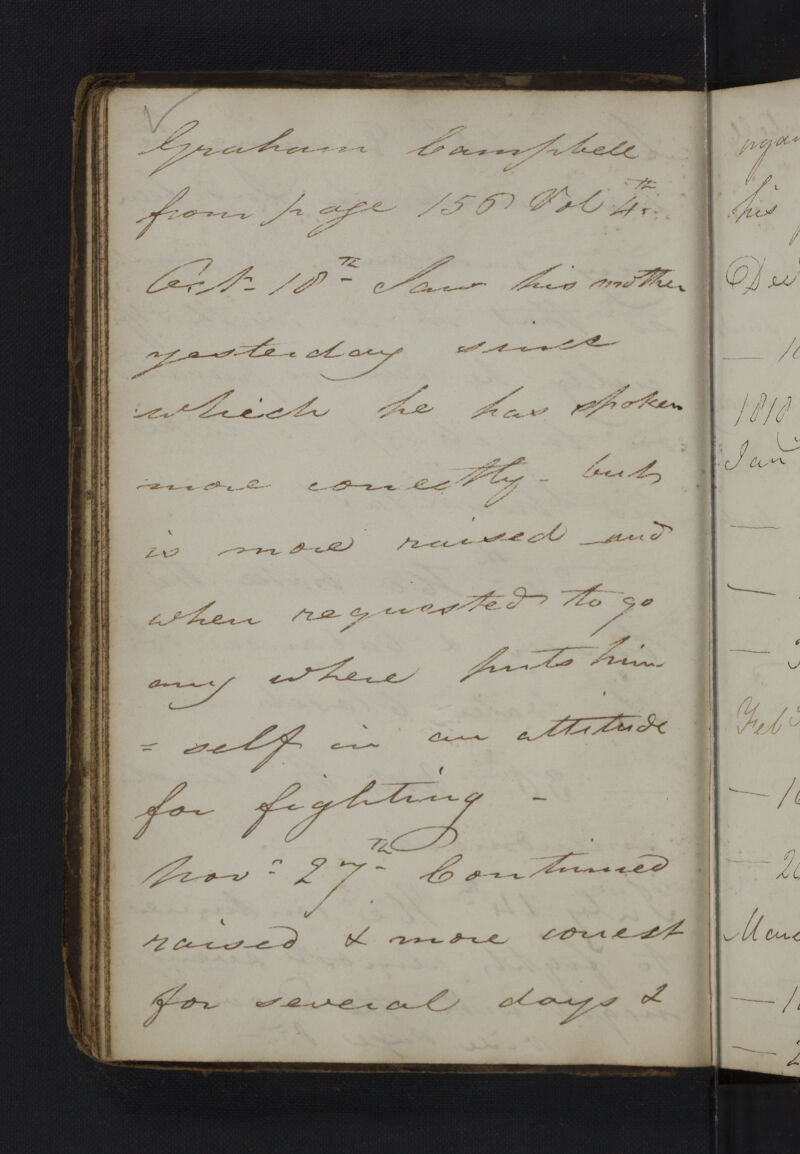 Graham Campbell
from page 156 Vol 4th.
Oct- 18th Saw his mother
yesterday since
which he has spoken
more correctly - but
is more raised and
when requested to go
any where puts him
= self in an attitude
for fighting -
Novr 27th Continued
raised & more correct
for several days &
his
Dec
— 1
1818
Jan
Feb
— 1
— 2
— 1
— 2